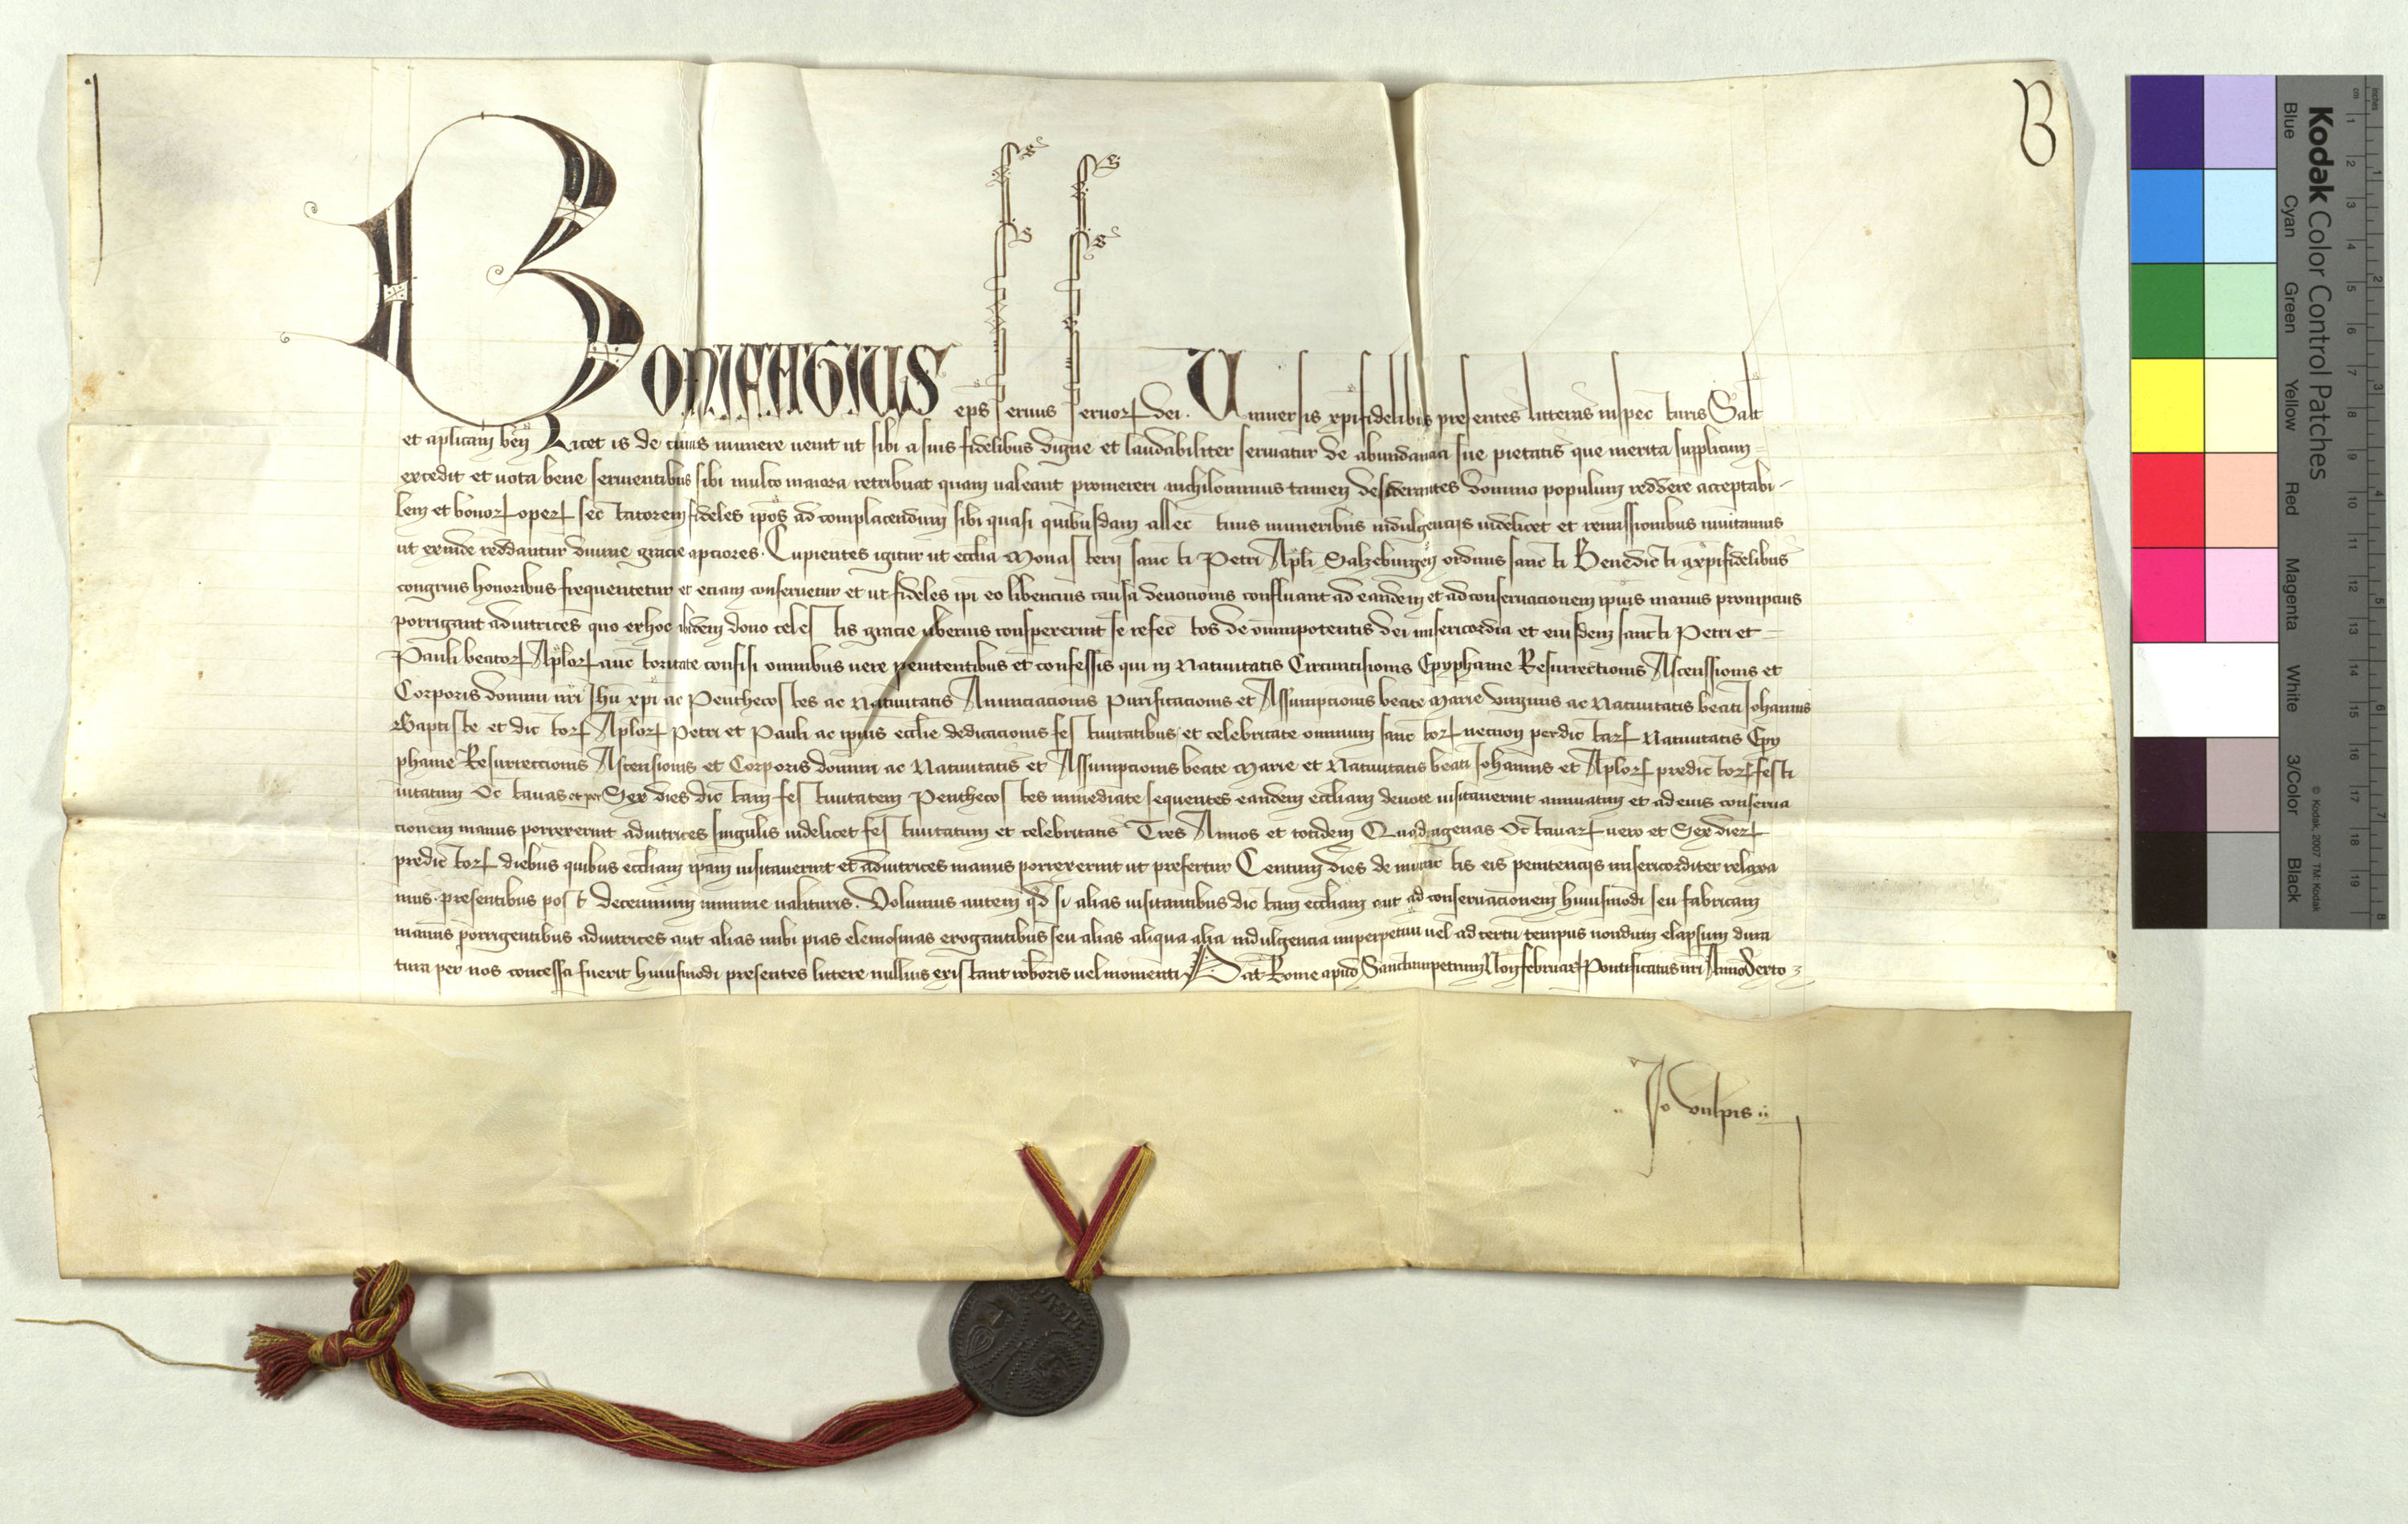 B
BONIFACIUS eps seruus seruor dei. Uniuersis xpifidelibus presentes litteras inspecturis Salt
et aplicam ben Licet is de cuius munere uenit ut sibi a suis fidelibus digne et laudabiliter seruiatur de abundancia sue pietatis que merita supplicum
excedit et uota bene seruientibus sibi multo maiora retribuat quam ualeant promereri nichilominus tamen desiderantes domino populum reddere acceptabi-
lem et bonor oper sectatorem fideles ipos ad complacendum sibi quasi quibusdam allectiuis muneribus indulgencijs uidelicet et remissionibus inuitamus
ut exinde reddantur diuine gracie apciores. Cupientes igitur ut ecclia Monasterij sancti Petri Apli Salzeburgen ordinis sancti Benedicti a xpifidelibus
congruis honoribus frequentetur et eciam conseruetur et ut fideles ipi eo libencius causa deuocionis confluant ad eandem et ad conseruacionem ipius manus prompcius
porrigant adiutrices quo ex hoc ibidem dono celestis gracie uberius conspexerint se refectos de omnipotentis dei misericordia et eiusdem sancti Petri et
Pauli beator Aplor auctoritate confisi omnibus uere penitentibus et confessis qui in Natiuitatis Circuncisionis Epyphanie Resurrectionis Ascensionis et
Corporis domini nri Jhu xpi ac Penthecostes ac Natiuitatis Anunciacionis Purificacionis et Assumpcionis beate Marie uirginis ac Natiuitatis beati Johannis
Baptiste et dictor Aplor Petri et Pauli ac ipius ecclie dedicacionis festiuitatibus et celebritate omnium sanctor necnon per dictar Natiuitatis Epy
phanie Resurrectionis Ascensionis et Corporis domini ac Natiuitatis et Assumpcionis beate Marie et Natiuitatis beati Johannis et Aplor predictor festi
uitatum Octauas et per Sex dies dictam festiuitatem Penthecostes immediate sequentes eandem eccliam deuote uisitauerint annuatim et ad eius conserua
cionem manus porrexerint adiutrices singulis uidelicet festiuitatum et celebritatis Tres Annos et totidem Quadragenas Octauar uero et Sex dier
predictor diebus quibus eccliam ipam uisitauerint et adiutrices manus porrexerint ut prefertur Centum dies de iniunctis eis penitencijs misericorditer relaxa
mus. presentibus post decennium minime ualituris. Volumus autem qd si alias uisitantibus dictam eccliam aut ad conseruacionem huiusmodi seu fabricam
manus porrigentibus adiutrices aut alias inibi pias elemosinas erogantibus seu alias aliqua alia indulgencia imperpetuu uel ad certu tempus nondum elapsum dura
tura per nos concessa fuerit huiusmodi presentes littere nullius existant roboris uel momenti. Dat Rome apud Sanctumpetrum Non februar Pontificatus nri Anno Sexto
Jo vulpis
Kodak Color Control Patches
© Kodak, 2007 TM: Kodak
Blue Cyan Green Yellow Red Magenta White 3/Color Black
cm 1 2 3 4 5 6 7 8 9 10 11 12 13 14 15 16 17 18 19
inches 1 2 3 4 5 6 7 8